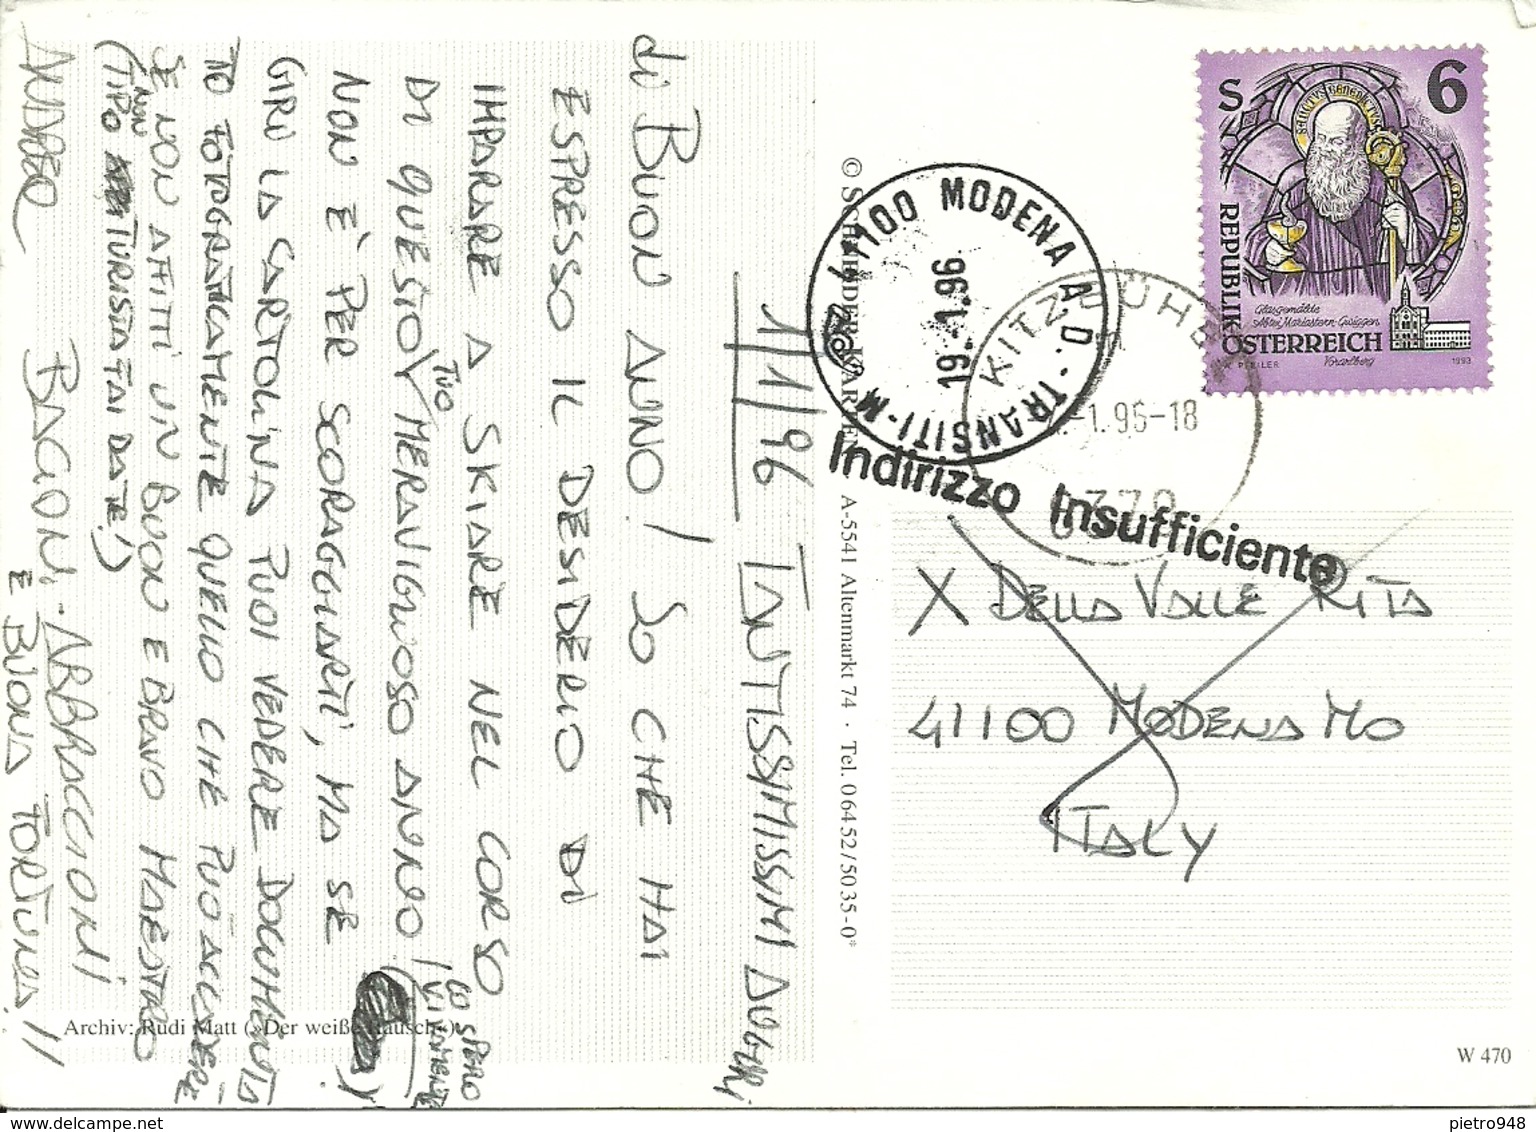 1/1/96 TANTISSIMISSIMI AUGURI
di BUON ANNO! SO CHE HAI
ESPRESSO IL DESIDERIO DI
IMPARARE A SKIARE NEL CORSO
DI QUESTO TUO MERAVIGLIOSO ANNO (LO SPERO VIVAMENTE)
NON È PER SCORAGGIARTI, MA SE
GIRI LA CARTOLINA PUOI VEDERE DOCUMENTA
TO FOTOGRAFICAMENTE QUELLO CHE PUÒ ACCADERE
SE NON AFFITTI UN BUON E BRAVO MAESTRO
(TIPO NON TURISTA TAI DATE!)
BACIONI, ABBRACCIONI
E BUONA FORTUNA!!
Archiv: Rudi Matt (»Der weiße Rausch«)
A-5541 Altenmarkt 74 · Tel. 06452/5035-0*
S 6
SANCTUS BENEDICTUS
REPUBLIK ÖSTERREICH
Glasgemälde
Abtei Mariastern-Gwiggen
Vorarlberg
1993
41100 MODENA A.D. - TRANSITI-M
19.-1.96
KITZBÜHEL
-1.96-18
6370
Indirizzo Insufficiente
X DELLA VALLE RITA
41100 MODENA MO
ITALY
W 470
pietro948